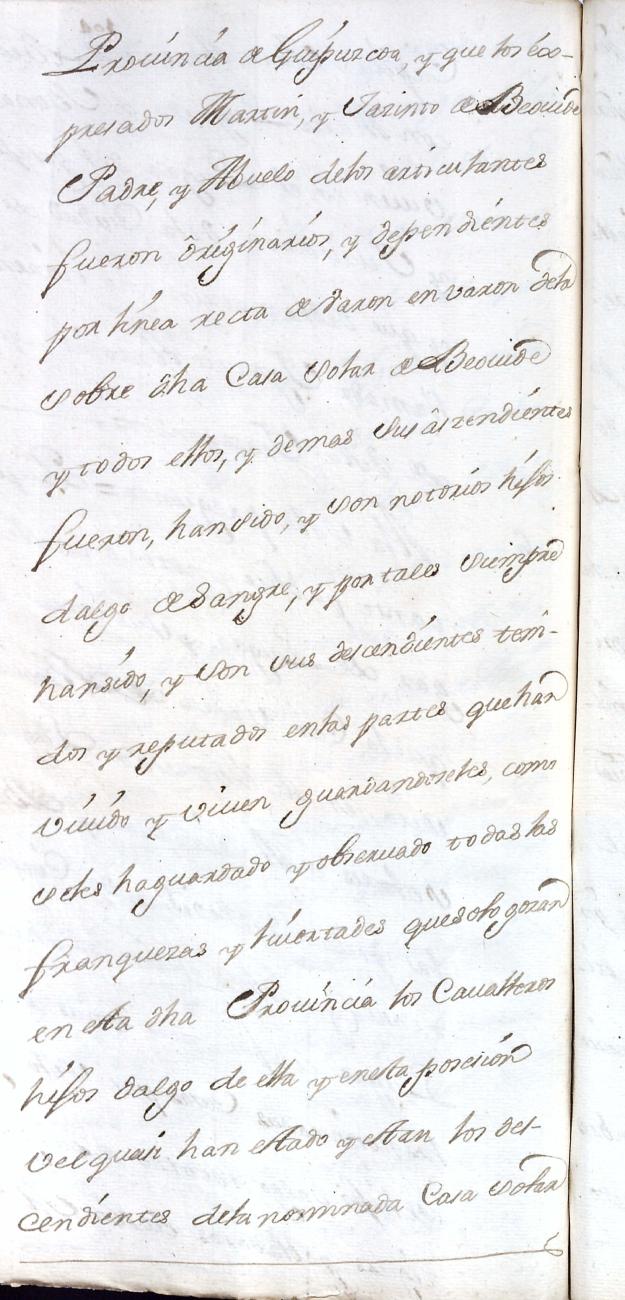 Provincia de Guipuzcoa, y que los ex-
presados Martin, y Jazinto de Beovide
Padre, y Abuelo delos articulantes
fueron originarios, y dependientes
por linea recta de varon en varon dela
sobre dha Casa Solar de Beovide
y todos ellos, y demas sus aszendientes
fueron, han sido, y son notorios hijos
dalgo de sangre, y por tales siempre
han sido, y son sus descendientes teni-
dos y reputados en las partes que han
vivido y viven guardandoseles, como
seles ha guardado y observado todas las
franquezas y livertades que solo gozan
en esta dha Provincia los Cavalleros
hijos dalgo de ella y en esta posesion
vel quasi han estado y estan los des-
cendientes dela nominada Casa Solar